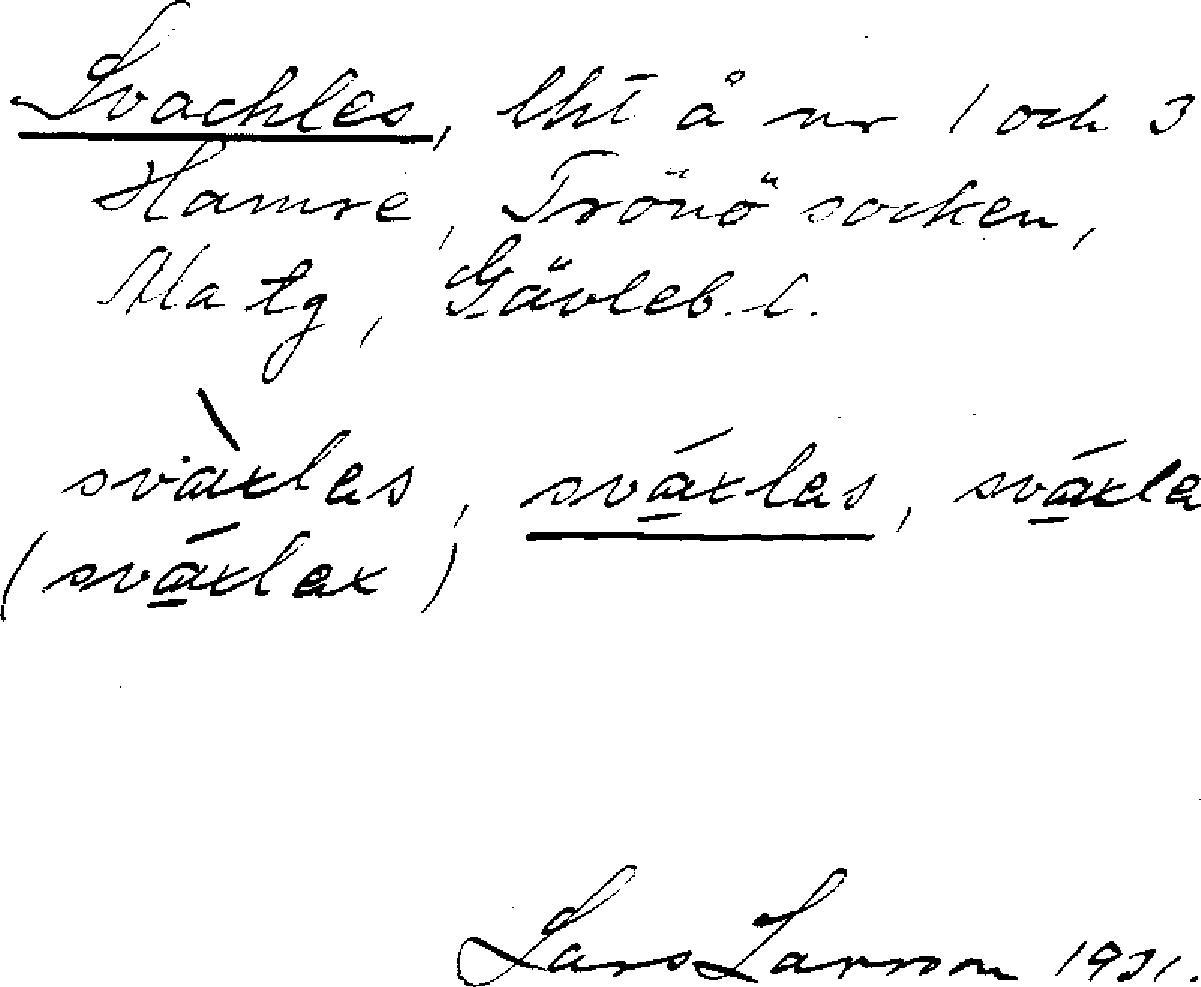 Svachles, lht å nr 1 och 3
Hamre, Trönö socken,
Ala tg, Gävleb. l.
svàxlas, sváxlas, sváxla
(sváxlax)
Lars Larsson 1931.